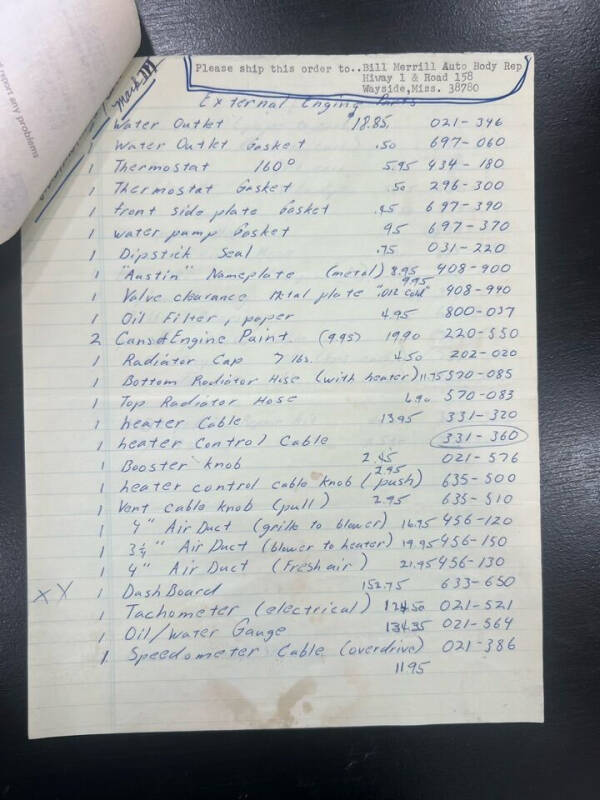 report any problems
Please ship this order to..Bill Merrill Auto Body Rep
Hiway 1 & Road 158
Wayside,Miss. 38780
External Engine Parts
1 Water Outlet $18.85 021-346
1 Water Outlet Gasket .50 697-060
1 Thermostat 160° 5.95 434-180
1 Thermostat Gasket .50 296-300
1 front side plate Gasket .95 697-390
1 water pump Gasket 95 697-370
1 Dipstick Seal .75 031-220
1 "Austin" Nameplate (metal) 8.95 408-900
1 Valve clearance Metal plate ".012 Cold" 9.95 408-940
1 Oil Filter, paper 4.95 800-037
2 Cans of Engine Paint (9.95) 19.90 220-550
1 Radiator Cap 7 lbs. 4.50 202-020
1 Bottom Radiator Hose (with heater) 11.75 570-085
1 Top Radiator Hose 6.90 570-083
1 heater Cable 13.95 331-320
1 heater Control Cable 331-360
1 Booster knob 2.45 021-576
1 heater control cable knob (push) 2.95 635-500
1 Vent cable knob (pull) 2.95 635-510
1 4" Air Duct (grille to blower) 16.95 456-120
1 3 1/4" Air Duct (blower to heater) 19.95 456-150
1 4" Air Duct (fresh air) 21.95 456-130
XY 1 DashBoard 152.75 633-650
1 Tachometer (electrical) 124.50 021-521
1 Oil/Water Gauge 134.35 021-564
1 Speedometer Cable (overdrive) 021-386
11.95